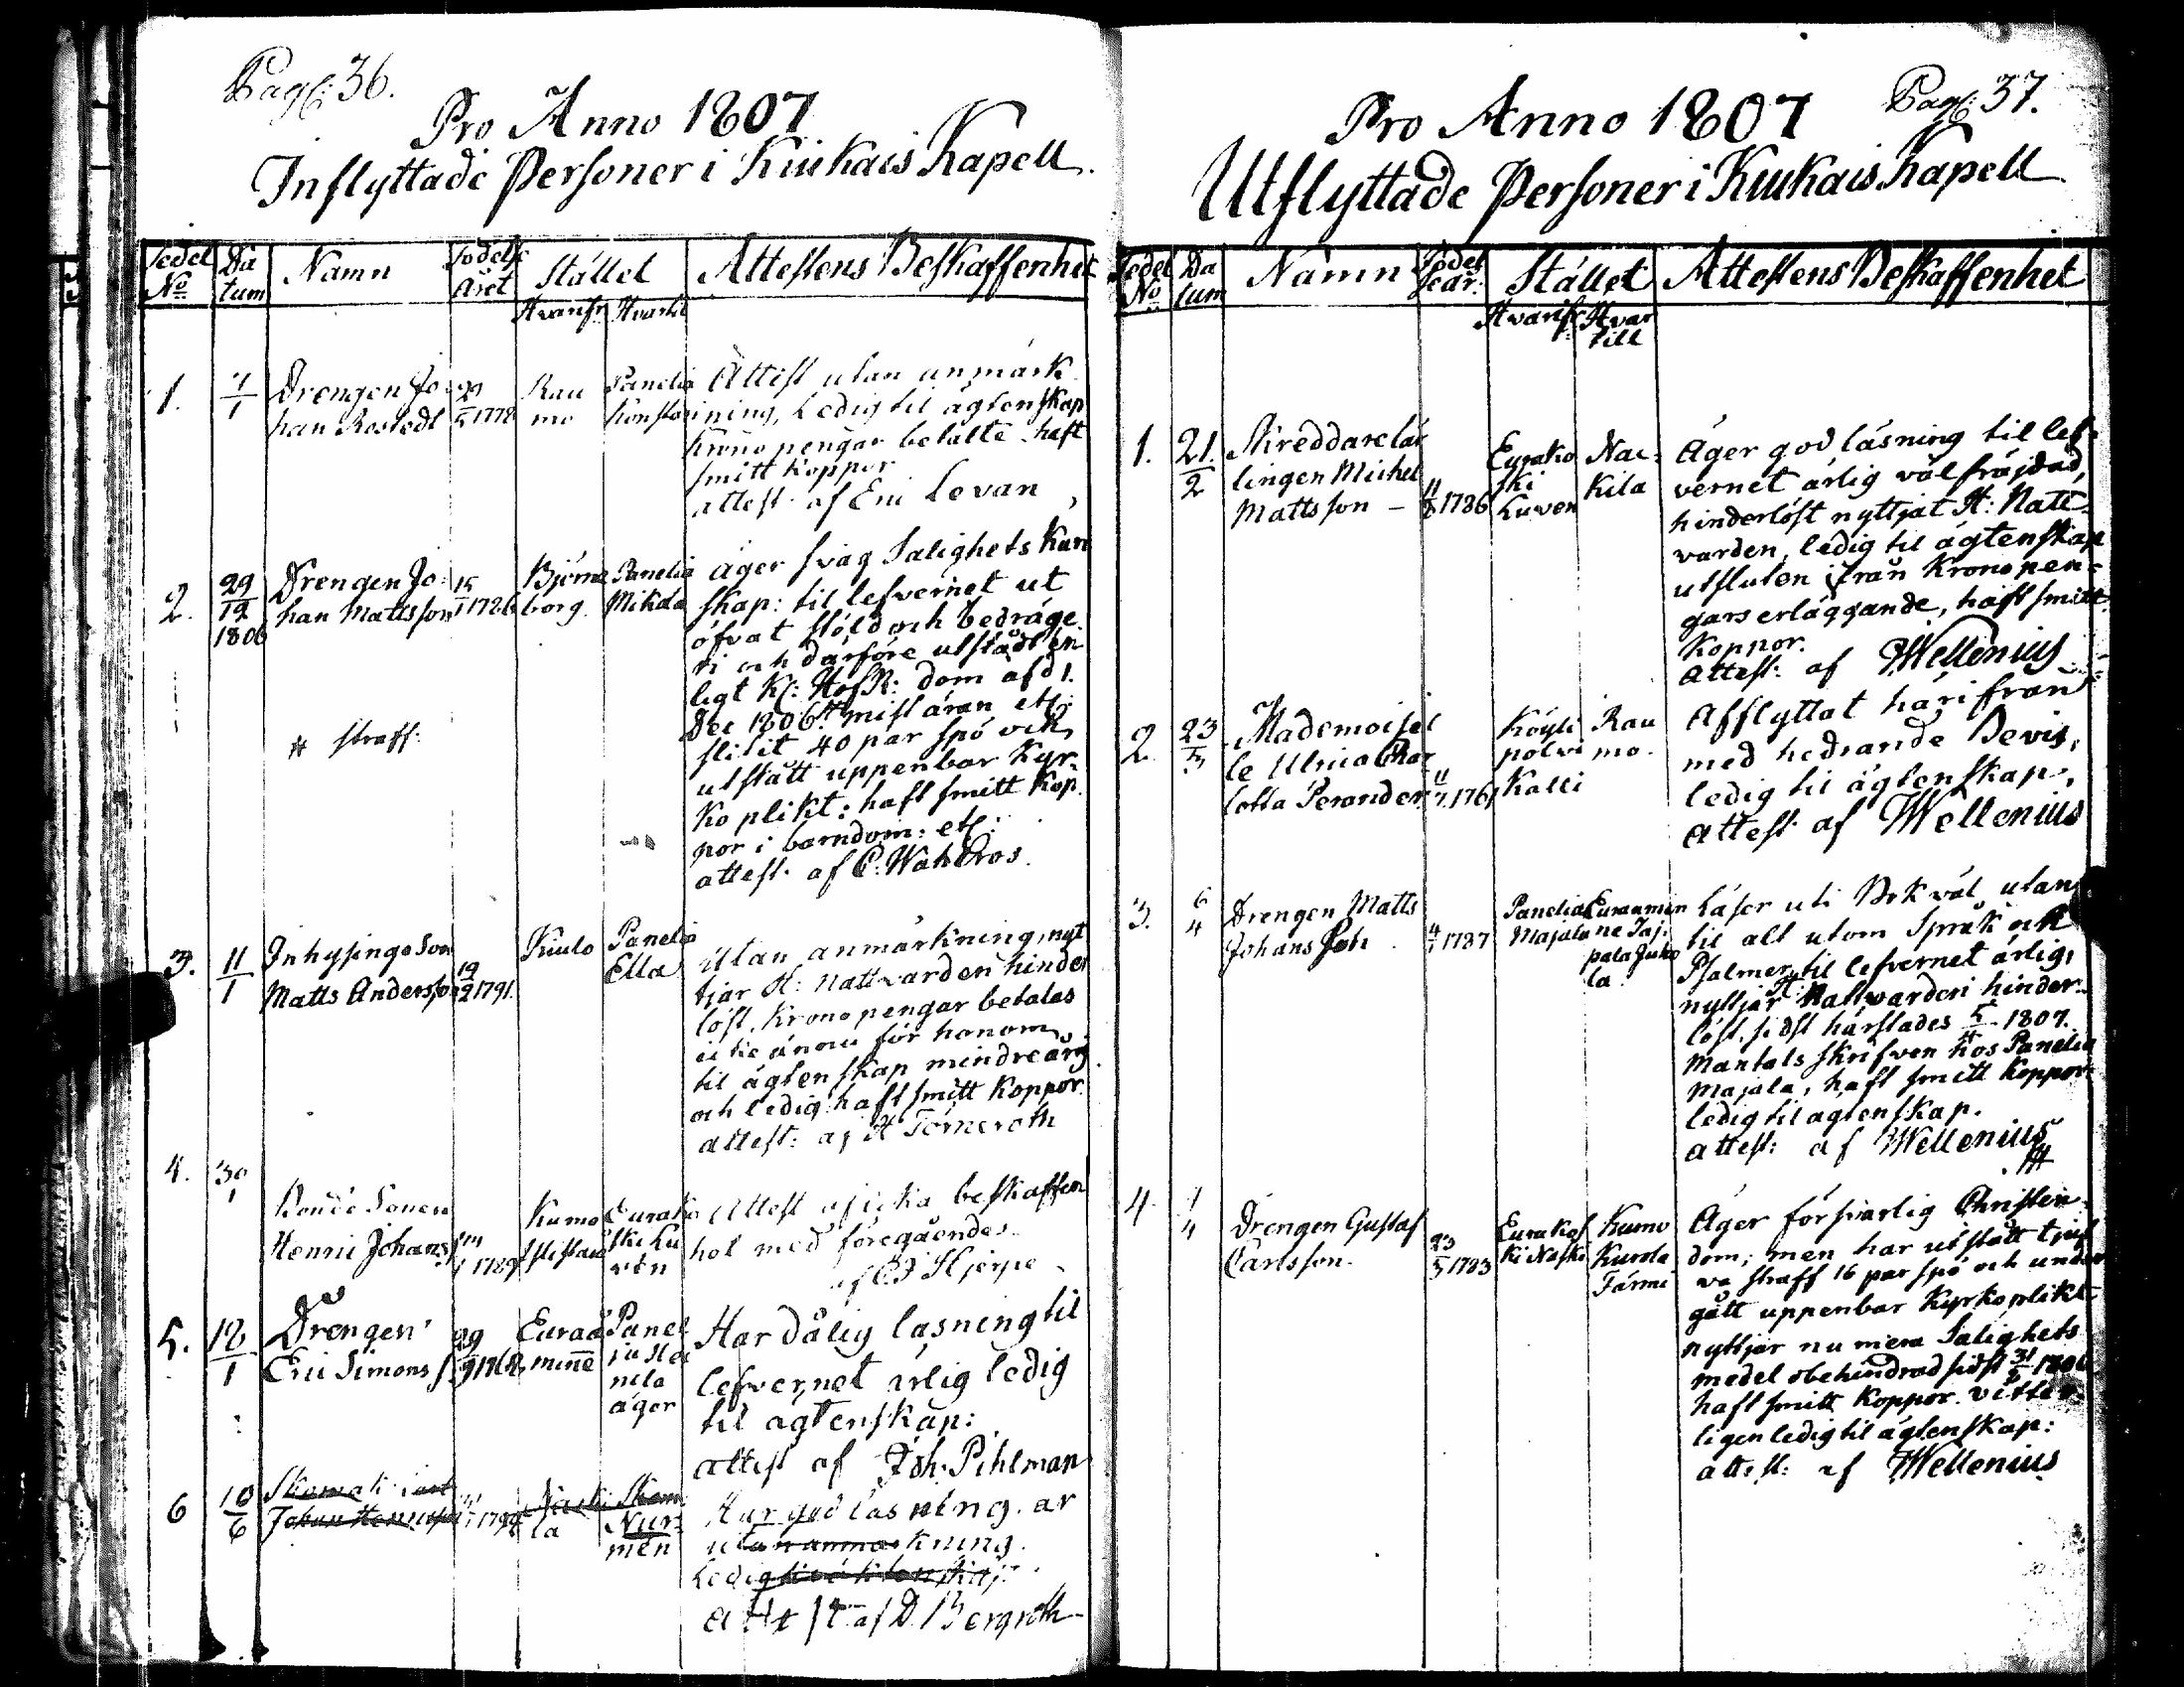 Pag: 36.
Pro Anno 1807
Inflyttade Personer i Kiukais Kapell.
Sedel No
Datum
Namn
Födelse Året
Stället
Hvarifr. Hvartil
Attestens Beskaffenhet
1.
7/1
Drengen Jo
han Rostedt
1778
Rau
mo
Panelia
Konstari
Attest utan anmärk
ning, Ledig til ägtenskap
Krono pengar betalte haft
smitt koppor
attest. af Eric Levan
2.
29/12
1806
Drengen Jo-
han Mattsson
15/1 1726
Björne
borg.
Panelia
Mikola
äger svag Salighets Kun
skap: til lefvernet ut
öfvat stöld och bedräge
ri och därföre utstådt en
ligt Kl: HofR: dom af d 1.
Dec 1806 # mist äran etc:
slitit 40 par spö och
utstått uppenbar Kyr-
ko plikt: haft smitt kop
por i barndom: etc:
attest. af C: Wahlroos.
# straff:
3.
11/1
Inhysinge Son
Matts Andersson
19/2 1791.
Kiulo
Panelia
Ella
Utan anmärkning, nyt
tjar H: Nattvarden hinder
löst, Krono pengar betalas
ei ännu för honom,
til ägtenskap mindreårig
och ledig: haft smitt koppor.
attest: af A Törneroth
4.
30/1
Bonde Sonen
Henric Johans
1789
Kumo
Eurako
ski Lu
ven
Attest af lika beskaffen
het med föregåendes
af Hjerpe
5.
18/1
Drengen
Eric Simons s.
29/9 1768
Euraå
minne
Panel
ia
nila
äger
Har dålig läsning til
lefvernet ärlig ledig
til ägtenskap:
attest af Joh. Pihlman
6
10/6
Johan Henricsson
la
Nur-
men
Har god läsning. är
utan anmärkning.
Ledig til ägtenskap:
attest af D. Bergroth
Pag: 37.
Pro Anno 1807
Utflyttade Personer i Kiukais Kapell
Sedel No
Datum
Namn
Födelse år:
Stället
Hvarifr: Hvar till
Attestens Beskaffenhet
1.
21./2
Skreddare lär
lingen Michel
Mattsson –
1786
Eurako
ski
Luven
Nac-
kila
Äger god läsning til lef-
vernet ärlig väl fräjdad,
hinderlöst nyttjat H: Natt-
varden, ledig til ägtenskap
utsluten ifrån Kronopen-
gars erläggande, haft smitt
koppor.
Attest: af Wellenius
2.
23/3
Mademoisel
le Ulrica Char
lotta Perander
11/7 1761
Köyli
polvi
Kalli
Rau
mo.
Afflyttat härifrån
med hedrande Bevis,
ledig til ägtenskap,
attest. af Wellenius
3.
6/4
Drengen Matts
Johans Son
1787
Panelia
Majala
Euraamin
ne Taj-
pala Juko
la
Läser uti Bok väl utan
til alt utom Språk och
Psalmer, til lefvernet ärlig,
nyttjar H: Nattvarden hinder-
löst, sidst härstädes 5/4 1807.
Mantals skrifven hos Panelia
Majala, haft smitt koppor
ledig til ägtenskap.
attest: af Wellenius
4.
7/4
Drengen Gustaf
Carlsson.
23/3 1783
Eurakos
ki
Kumo
Äger försvarlig Christen
dom; men har utstått tjuf
va straff 16 par spö och under
gått uppenbar kyrkoplikt
nyttjar nu mera Salighets
medel obehindrad sidst 1806
haft smitt koppor. vitter
ligen ledig til ägtenskap:
attest: af Wellenius